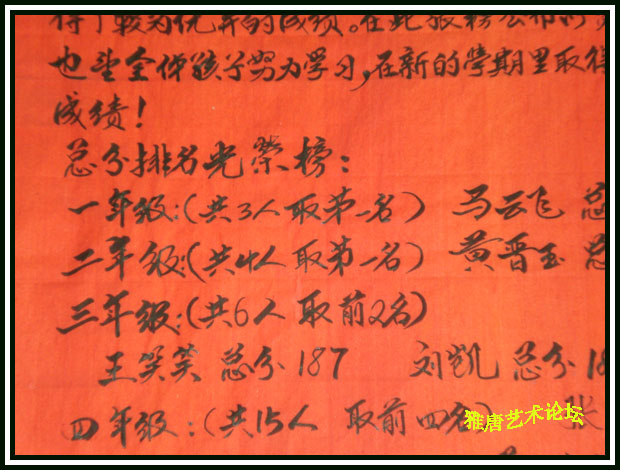 得了较为优异的成绩。在此张榜公布
也望全体孩子努力学习,在新的学期里取得
成绩!
总分排名光荣榜:
一年级:(共3人取第一名) 马云飞 总
二年级:(共4人取第一名) 黄晋玉 总
三年级:(共6人取前2名)
王笑笑 总分187 刘凯 总分18
四年级:(共15人 取前四名) 张
雅唐艺术论坛